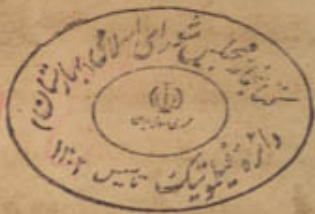 کتابخانه مجلس شورای اسلامی (بهارستان)
جمهوری اسلامی ایران
دائره
تأسیس ۱۳۰۲